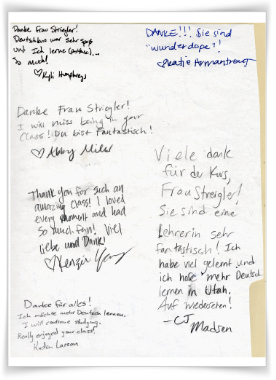 Danke Frau Striegler!
Deutschkurs war sehr spaß
und Ich lerne
So much!
♡Kyli Humphreys
DANKE!!! Sie sind
"wunderdope"!
Danke Frau Striegler!
I will miss being in your
class! Du bist Fantastisch!
♡Abby Miler
Thank you for such an
amazing class! I loved
every moment and had
so much fun! Viel
liebe und Danke!
♡Kenzie
Viele dank
für der Kurs,
Frau Streigler!
Sie sind eine
Lehrerin sehr
fantastisch! Ich
habe viel gelernt und
ich hoffe mehr Deutsch
lernen in Utah.
Auf wiedersehen!
-CJ
Madsen
Danke für alles!
Ich möchte mehr Deutsch lernen.
I will continue studying.
Really enjoyed your class!
Larson